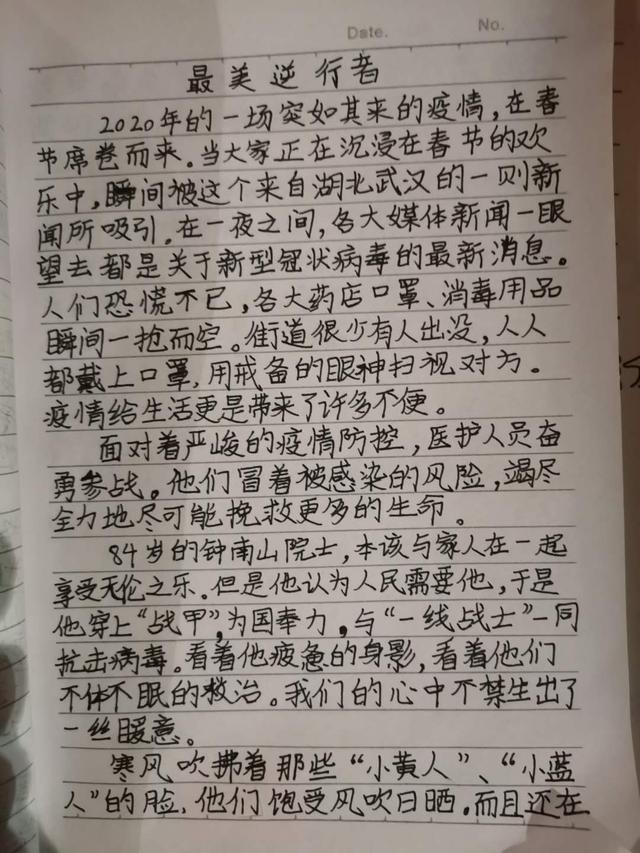 Date.
No.
最美逆行者
2020年的一场突如其来的疫情,在春
节席卷而来.当大家正在沉浸在春节的欢
乐中,瞬间被这个来自湖北武汉的一则新
闻所吸引.在一夜之间,各大媒体新闻一眼
望去都是关于新型冠状病毒的最新消息。
人们恐慌不已,各大药店口罩、消毒用品
瞬间一抢而空。街道很少有人出没,人人
都戴上口罩,用戒备的眼神扫视对方。
疫情给生活更是带来了许多不便。
面对着严峻的疫情防控,医护人员奋
勇参战。他们冒着被感染的风险,竭尽
全力地尽可能挽救更多的生命。
84岁的钟南山院士,本该与家人在一起
享受天伦之乐.但是他认为人民需要他,于是
他穿上“战甲”,为国奉力,与“一线战士”一同
抗击病毒。看着他疲惫的身影,看着他们
不休不眠的救治。我们的心中不禁生出了
一丝暖意。
寒风吹拂着那些“小黄人”、“小蓝
人”的脸,他们饱受风吹日晒.而且还在